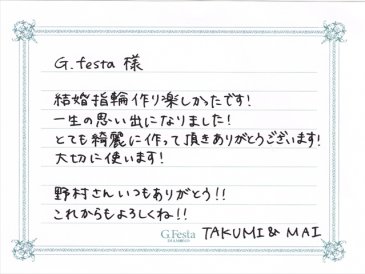 G.festa 様
結婚指輪作り楽しかったです!
一生の思い出になりました!
とても綺麗に作って頂きありがとうございます!
大切に使います!
野村さんいつもありがとう!!
これからもよろしくね!!
G.Festa
TAKUMI & MAI